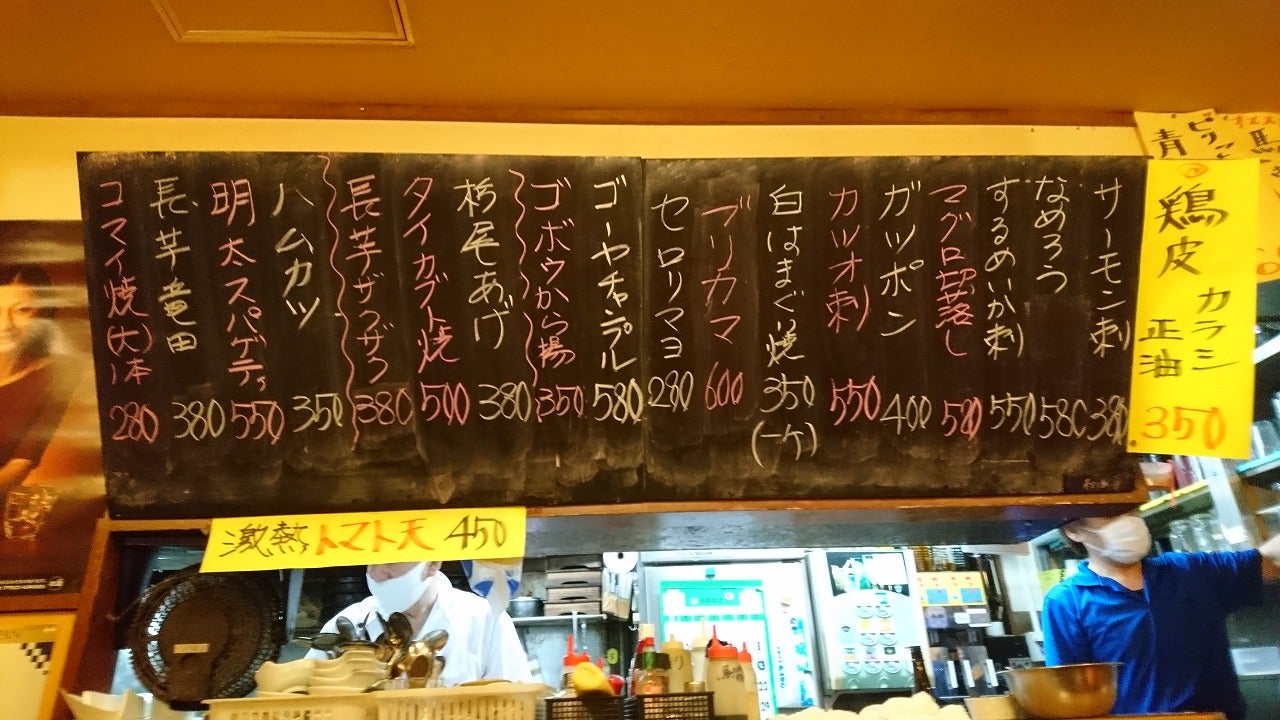 サーモン刺 380
なめろう 580
するめいか刺 550
マグロ部落し 580
ガツポン 400
カツオ刺 550
白はまぐり焼 350
(一ケ)
ブリカマ 600
セロリマヨ 280
ゴーヤチャンプル 580
ゴボウから揚 350
栃尾あげ 380
タイカブト焼 500
長芋ザクザク 380
ハムカツ 350
明太スパゲティ 550
長芋竜田 380
コマイ焼(大)1本 280
鶏皮
カラシ
正油
350
激熱トマト天 450
青
馬